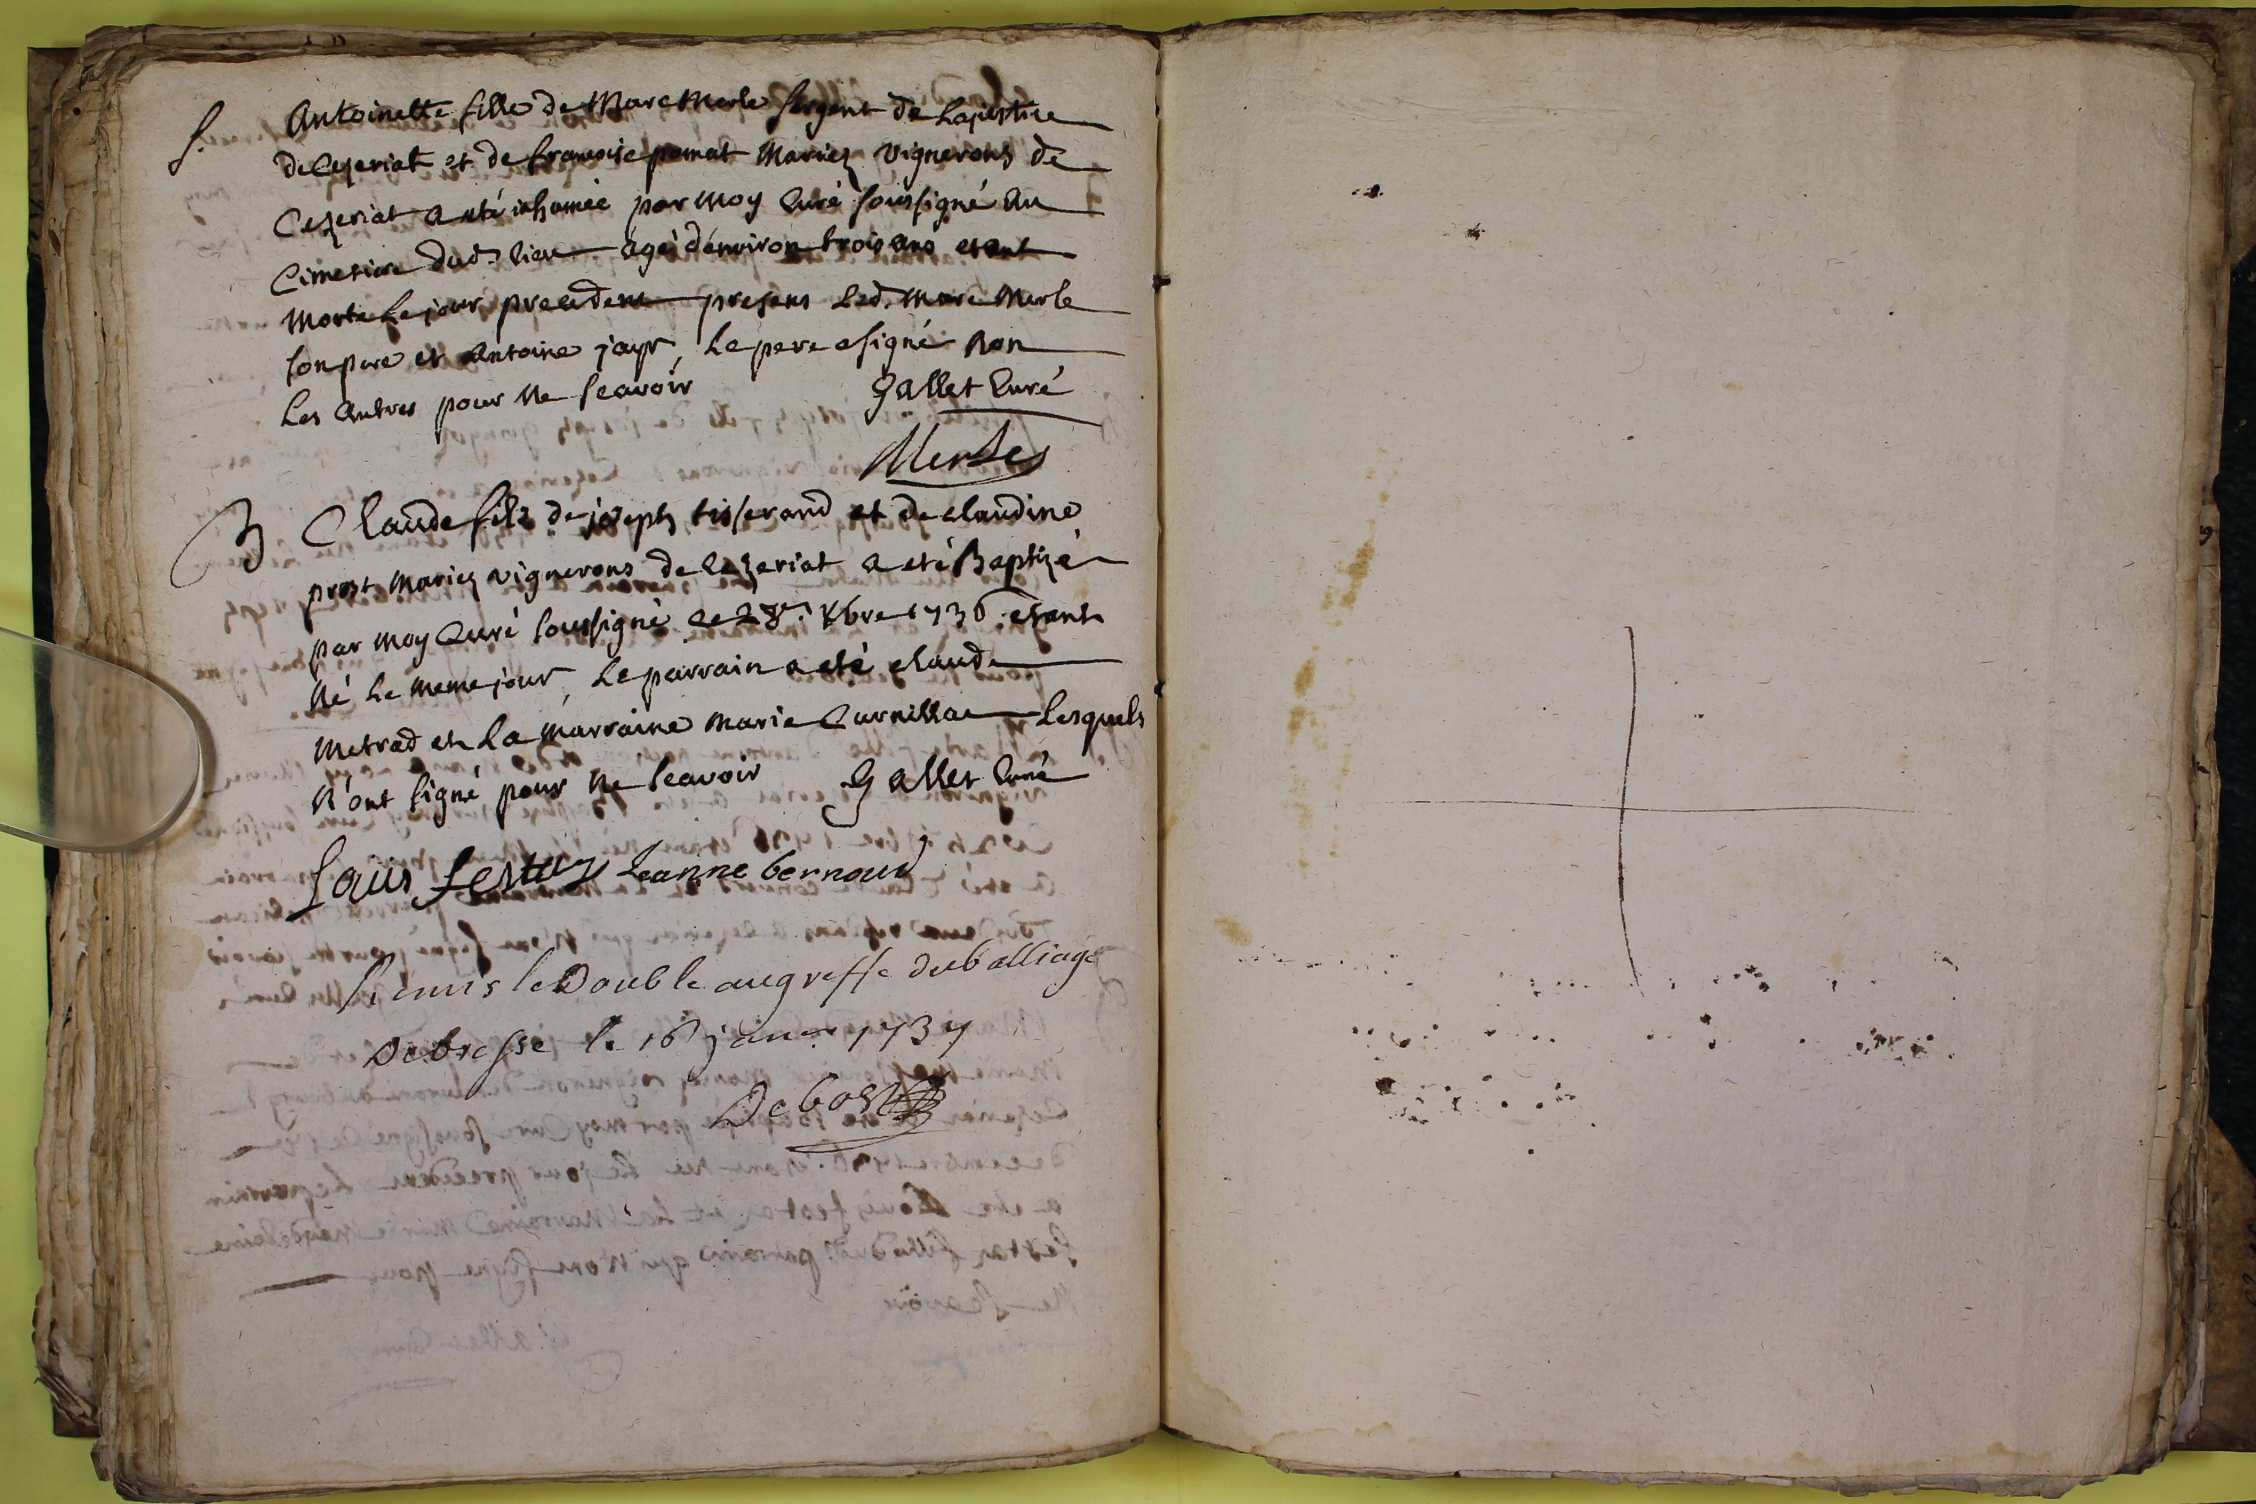 S. Antoinette fille de Marc Merle sergent de la justice
de Cezeriat et de francoise pomat Mariez vignerons de
Cezeriat a eté inhumée par moy Curé soussigné au
Cimetiere dud. lieu agée d'environ trois ans etant
morte le jour precedent presens led. Marc Merle
son pere et Antoine jayr, le pere a signé non
les autres pour ne scavoir Gallet Curé
Merle
B Claude fils de joseph tisserand et de claudine
prost Mariez vignerons de Cezeriat a eté Baptizé
par moy Curé soussigné le 28e. Xbre 1736. etant
Né le meme jour, le parrain a eté claude
Metrad et la marraine marie Curnillac lesquels
N'ont signé pour ne scavoir Gallet Curé
Louis Jeanne bernoud
Remis le Double au greffe du balliage
De bresse le 16 janer 1737
Debost